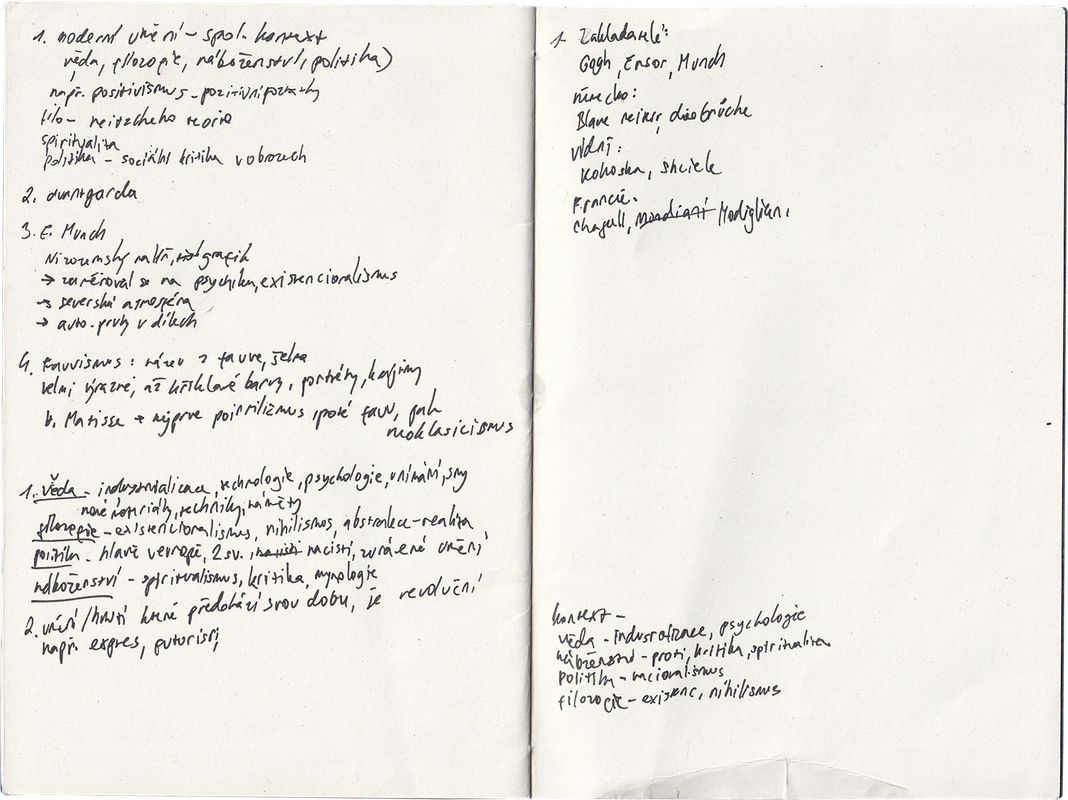 1. moderní umění - spol. kontext
věda, filozofie, náboženství, politika)
např. positivismus - pozitivní poznatky
filo - neitzcheho teorie
spiritualita
politika - sociální kritika v obrazech
2. avantgarda
3. E. Munch
Nizozemský malíř, grafik
→ zaměřoval se na psychiku, existencionalismus
→ severská atmosféra
→ auto. prvky v dílech
4. Fauvismus: název z fauve, šelma
velmi výrazné, až křiklavé barvy, portréty, krajiny
H. Matisse → nejprve pointilizmus, poté fauv, pak
neoklasicismus
1. věda - industrializace, technologie, psychologie, vnímání, sny
nové materiály, techniky, náměty
filozofie - existencionalismus, nihilismus, abstrakce - realita
politika - hlavě v evropě, 2 sv. nacisti nacisti, zvrácené umění
náboženství - spiritualismus, kritika, mytologie
2. umění/hnutí které předchází svou dobu, je revoluční
např. expres, futurismus
1. Zakladatelé:
Gogh, Ensor, Munch
německo:
Blaue reiter, die brüche
vídní:
Kokoska, shiele
Francie:
Chagall, Mondiani Modigliani
kontext -
věda - industrializace, psychologie
náboženství - proti, kritika, spiritualita
politika - nacionalismus
filozofie - existenc, nihilismus